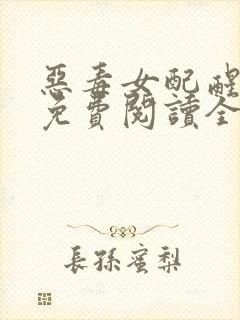 惡毒女配醒
免費閱讀全
長孫蜜梨